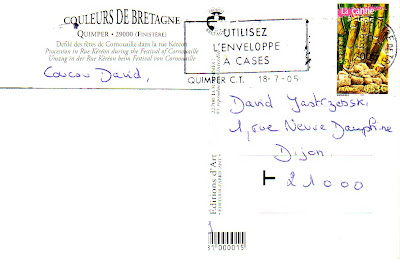 COULEURS DE BRETAGNE
QUIMPER - 29000 (FINISTÈRE)
Défilé des fêtes de Cornouaille dans la rue Kéréon
Procession in Rue Kéréon during the Festival of Cornouaille
Umzug in der Rue Kéréon beim Festival von Cornouaille
Coucou David,
UTILISEZ
L'ENVELOPPE
A CASES
QUIMPER C.T. 18-7-05
La canne
à sucre
0,53€
David Jastrzebski
1, rue Neuve Dauphine
Dijon
21000
T
Editions d'Art